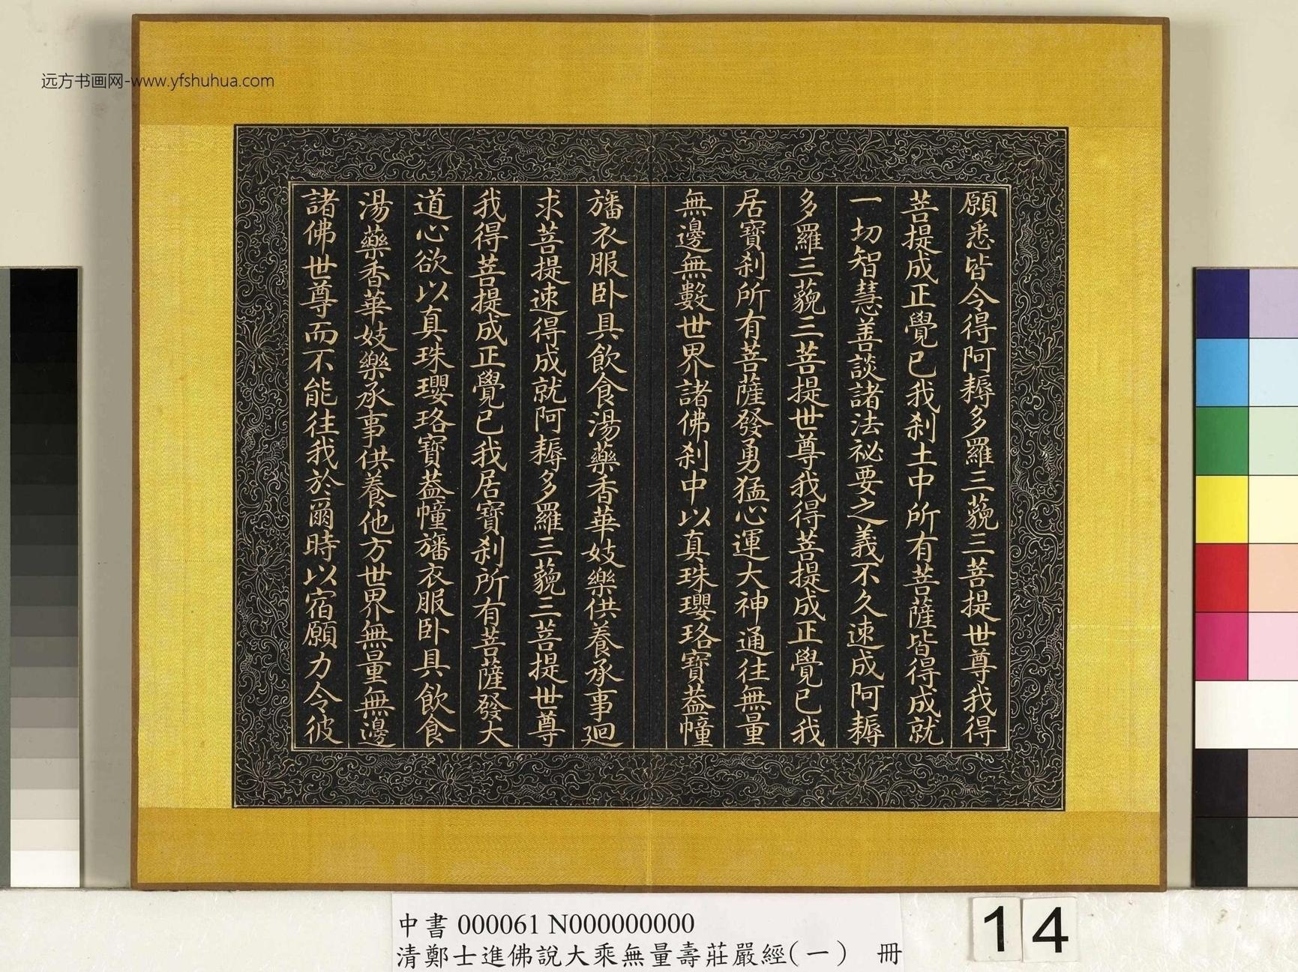 远方书画网-www.yfshuhua.com
願悉皆令得阿耨多羅三藐三菩提世尊我得
菩提成正覺已我刹土中所有菩薩皆得成就
一切智慧善談諸法祕要之義不久速成阿耨
多羅三藐三菩提世尊我得菩提成正覺已我
居寶刹所有菩薩發勇猛心運大神通往無量
無邊無數世界諸佛刹中以真珠瓔珞寶蓋幢
旛衣服卧具飲食湯藥香華妓樂供養承事廻
求菩提速得成就阿耨多羅三藐三菩提世尊
我得菩提成正覺已我居寶刹所有菩薩發大
道心欲以真珠瓔珞寶蓋幢旛衣服卧具飲食
湯藥香華妓樂承事供養他方世界無量無邊
諸佛世尊而不能往我於爾時以宿願力令彼
中書 000061 N000000000
清鄭士進佛說大乘無量壽莊嚴經(一) 冊
14